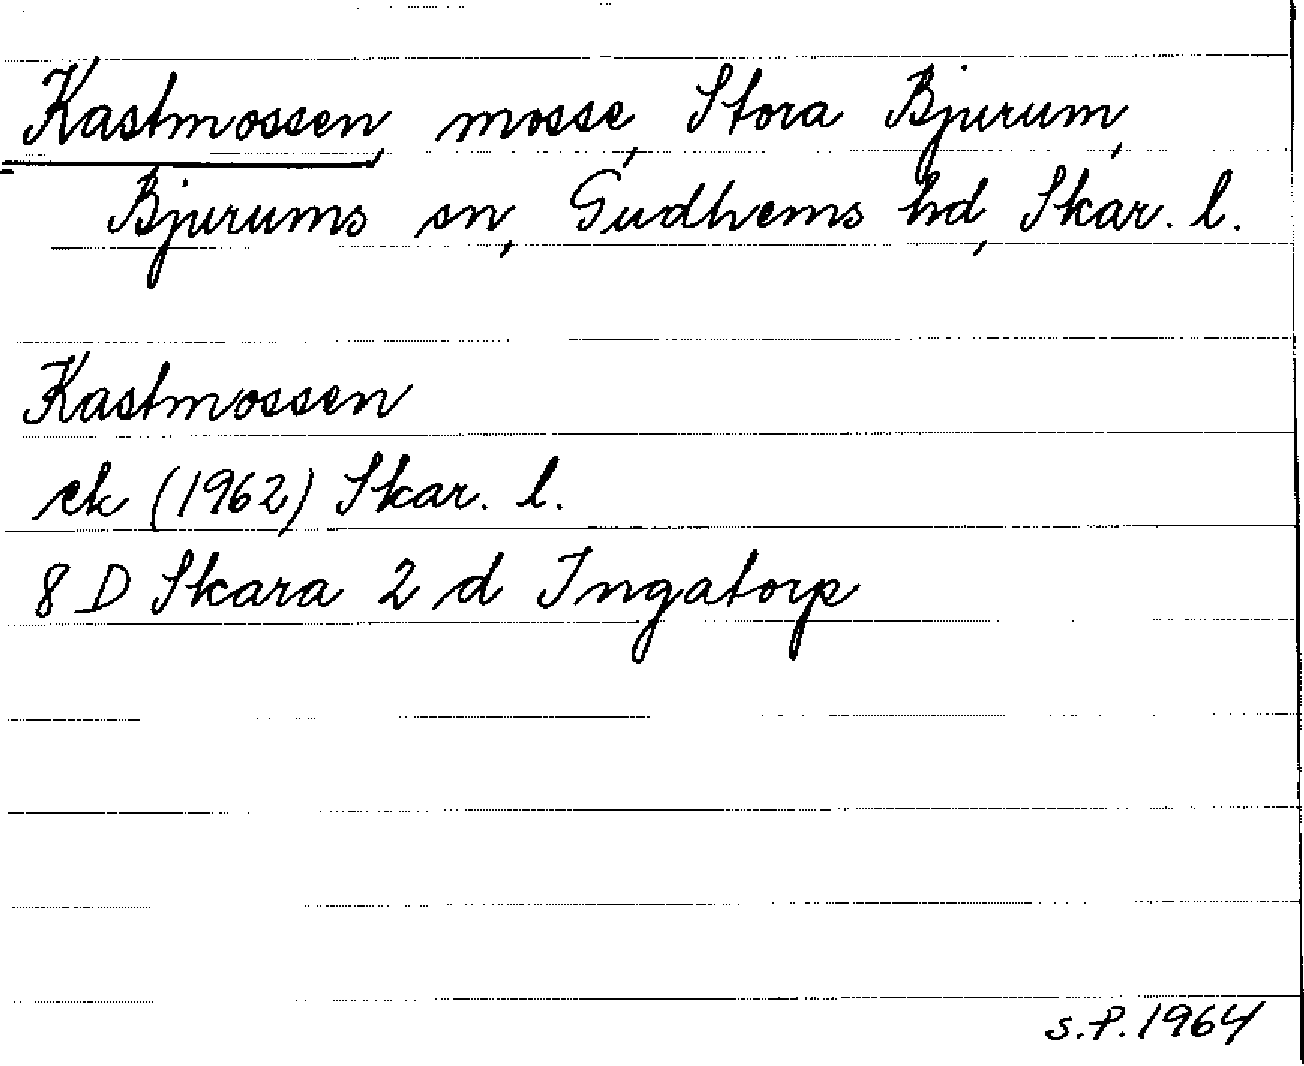 Kastmossen, mosse, Stora Bjurum,
Bjurums sn, Gudhems hd, Skar. l.
Kastmossen
ek (1962) Skar. l.
8 D Skara 2 d Ingatorp
S.P. 1964